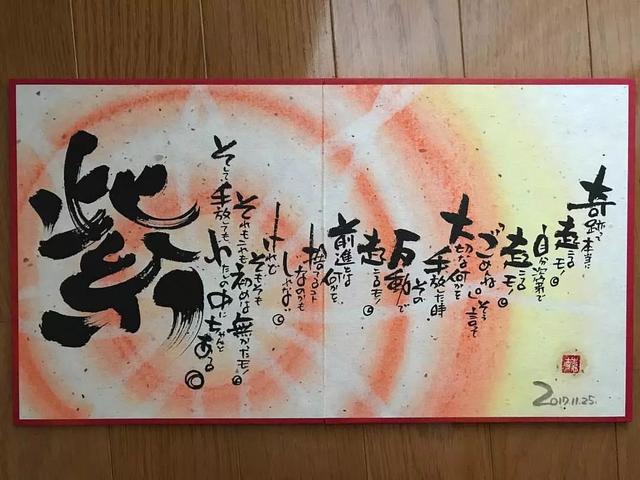 奇跡って本当に
起こるモノ◎
自分次第で
起こるモノ◎
「ごめんね」そう言って
大切な何かを
手放した時
その
反動で
起こるモノ◎
前進とは
何かを
捨てるコト
なのかも
しれない
けれど◎
そもそも
それもこれも初めは無かったモノ◎
そして手放しても
わたしの中にちゃんと
ある◎
紫
2017.11.25.